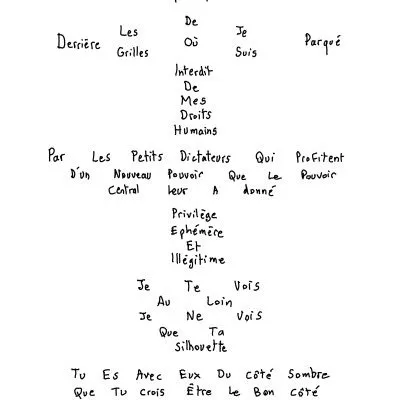 De
Les Je
Derrière Où Parqué
Grilles Suis
Interdit
De
Mes
Droits
Humains
Par Les Petits Dictateurs Qui Profitent
D'un Nouveau Pouvoir Que Le Pouvoir
Central leur A donné
Privilège
Ephémère
Et
Illégitime
Je Te Vois
Au Loin
Je Ne Vois
Que Ta
Silhouette
Tu Es Avec Eux Du Côté Sombre
Que Tu Crois Être Le Bon Côté